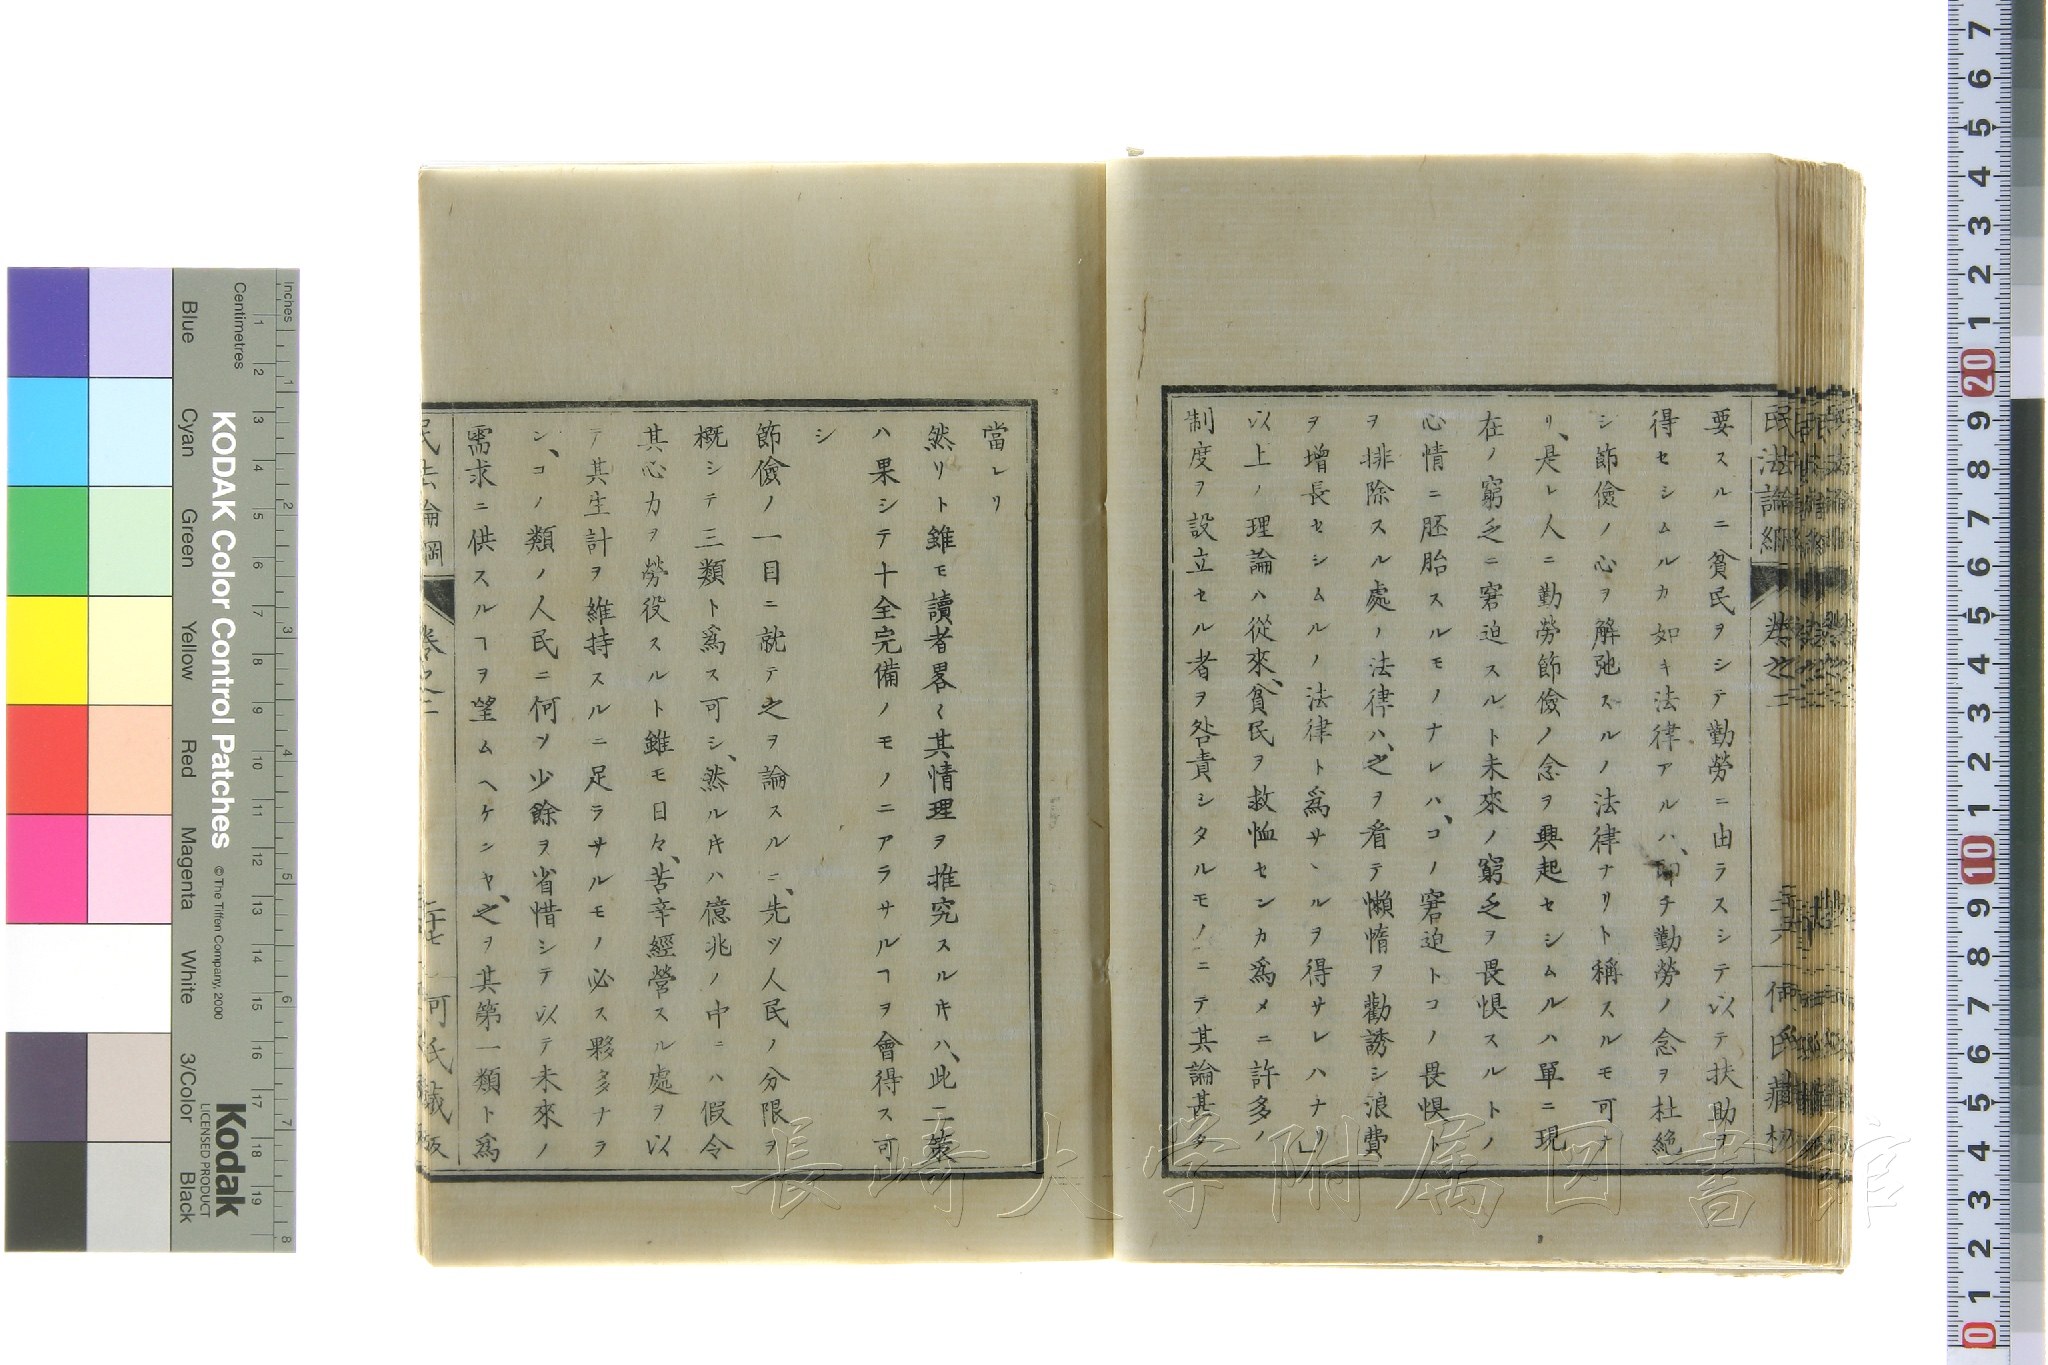 要スルニ貧民ヲシテ勤勞ニ由ラスシテ以テ扶助ヲ
得セシムルカ如キ法律アルハ、即チ勤勞ノ念ヲ杜絶
シ節儉ノ心ヲ解弛スルノ法律ナリト稱スルモ可ナ
リ、是レ人ニ勤勞節儉ノ念ヲ興起セシムルハ單ニ現
在ノ窮乏ニ窘迫スルト未來ノ窮乏ヲ畏惧スルトノ
心情ニ胚胎スルモノナレハ、コノ窘迫トコノ畏惧ト
ヲ排除スル處ノ法律ハ、之ヲ看テ懶惰ヲ勸誘シ浪費
ヲ增長セシムルノ法律ト爲サヽルヲ得サレハナリ」
以上ノ理論ハ從來、貧民ヲ救恤センカ爲メニ許多ノ
制度ヲ設立セル者ヲ咎責シタルモノニテ其論甚タ
民法論綱 卷之二 二十六 何氏藏板
當レリ
然リト雖モ讀者畧〻其情理ヲ推究スルキハ、此二策
ハ果シテ十全完備ノモノニアラサルヿヲ會得ス可
シ
節儉ノ一目ニ就テ之ヲ論スルニ、先ツ人民ノ分限ヲ
概シテ三類ト爲ス可シ、然ルキハ億兆ノ中ニハ假令
其心力ヲ勞役スルト雖モ日々、苦辛經營スル處ヲ以
テ其生計ヲ維持スルニ足ラサルモノ必ス夥多ナラ
ン、コノ類ノ人民ニ何ソ少餘ヲ省惜シテ以テ未來ノ
需求ニ供スルヿヲ望ムヘケンヤ、之ヲ其第一類ト爲
民法論綱 卷之二 二十七 何氏藏板
長崎大学附属図書館
Inches
Centimetres
KODAK Color Control Patches
© The Tiffen Company, 2000
Kodak
LICENSED PRODUCT
Blue
Cyan
Green
Yellow
Red
Magenta
White
3/Color
Black
1 2 3 4 5 6 7 8 9 10 11 12 13 14 15 16 17 18 19
1 2 3 4 5 6 7 8
7 6 5 4 3 2 1 20 9 8 7 6 5 4 3 2 1 10 9 8 7 6 5 4 3 2 1 0